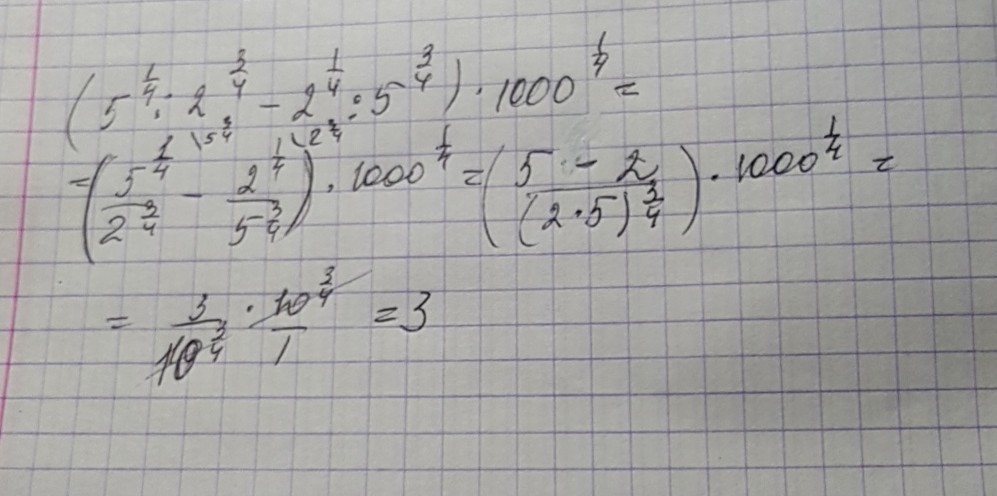 (5^{\frac{1}{4}} : 2^{\frac{3}{4}} - 2^{\frac{1}{4}} : 5^{\frac{3}{4}}) \cdot 1000^{\frac{1}{4}} =
= \left(\frac{5^{\frac{1}{4}}}{2^{\frac{3}{4}}}^{\backslash 5^{\frac{3}{4}}} - \frac{2^{\frac{1}{4}}}{5^{\frac{3}{4}}}^{\backslash 2^{\frac{3}{4}}}\right) \cdot 1000^{\frac{1}{4}} = \left(\frac{5 - 2}{(2 \cdot 5)^{\frac{3}{4}}}\right) \cdot 1000^{\frac{1}{4}} =
= \frac{3}{10^{\frac{3}{4}}} \cdot \frac{10^{\frac{3}{4}}}{1} = 3